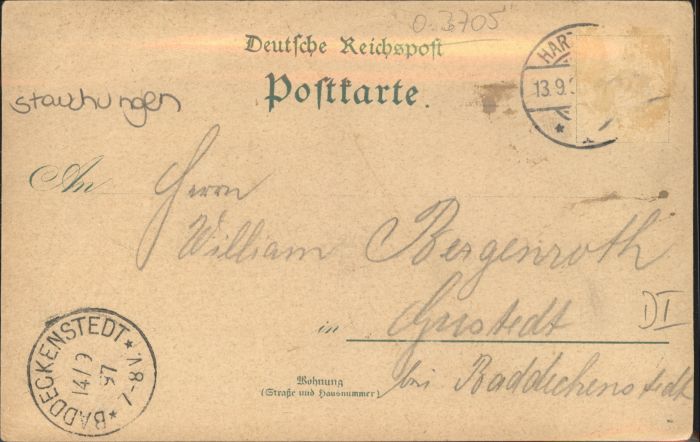 0-3705
Deutsche Reichspost
Postkarte.
HAR
13.9.
stauchungen
An
Herrn
William Bergenroth
in Gustedt
DI
bei Baddeckenstedt
Wohnung
(Straße und Hausnummer)
BADDECKENSTEDT
14/9
97
* 7-8V. *